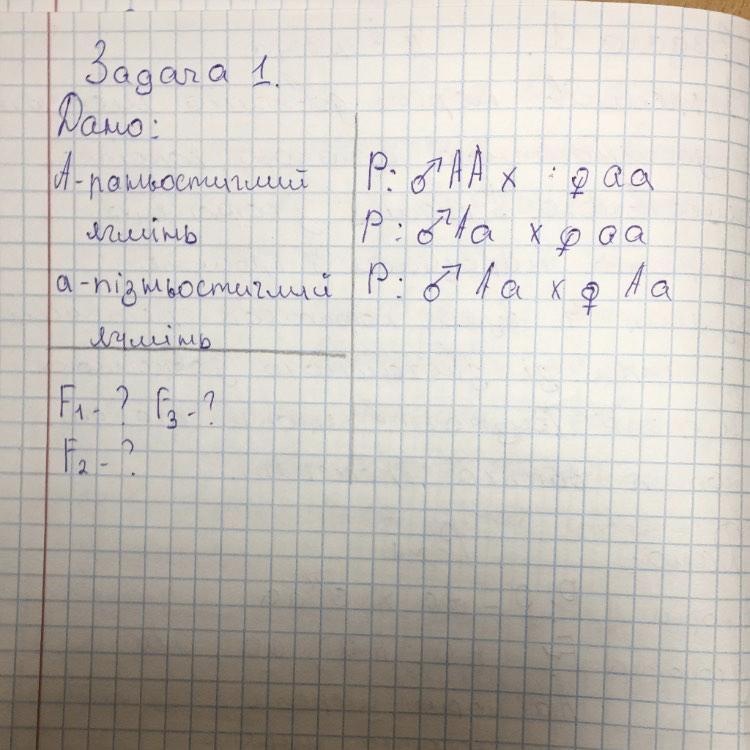 Задача 1.
Дано:
А-ранньостиглий
ячмінь
а-пізньостиглий
ячмінь
F₁-? F₃-?
F₂-?
P: ♂AA x ♀ aa
P: ♂Aa x ♀ aa
P: ♂ Aa x ♀ Aa